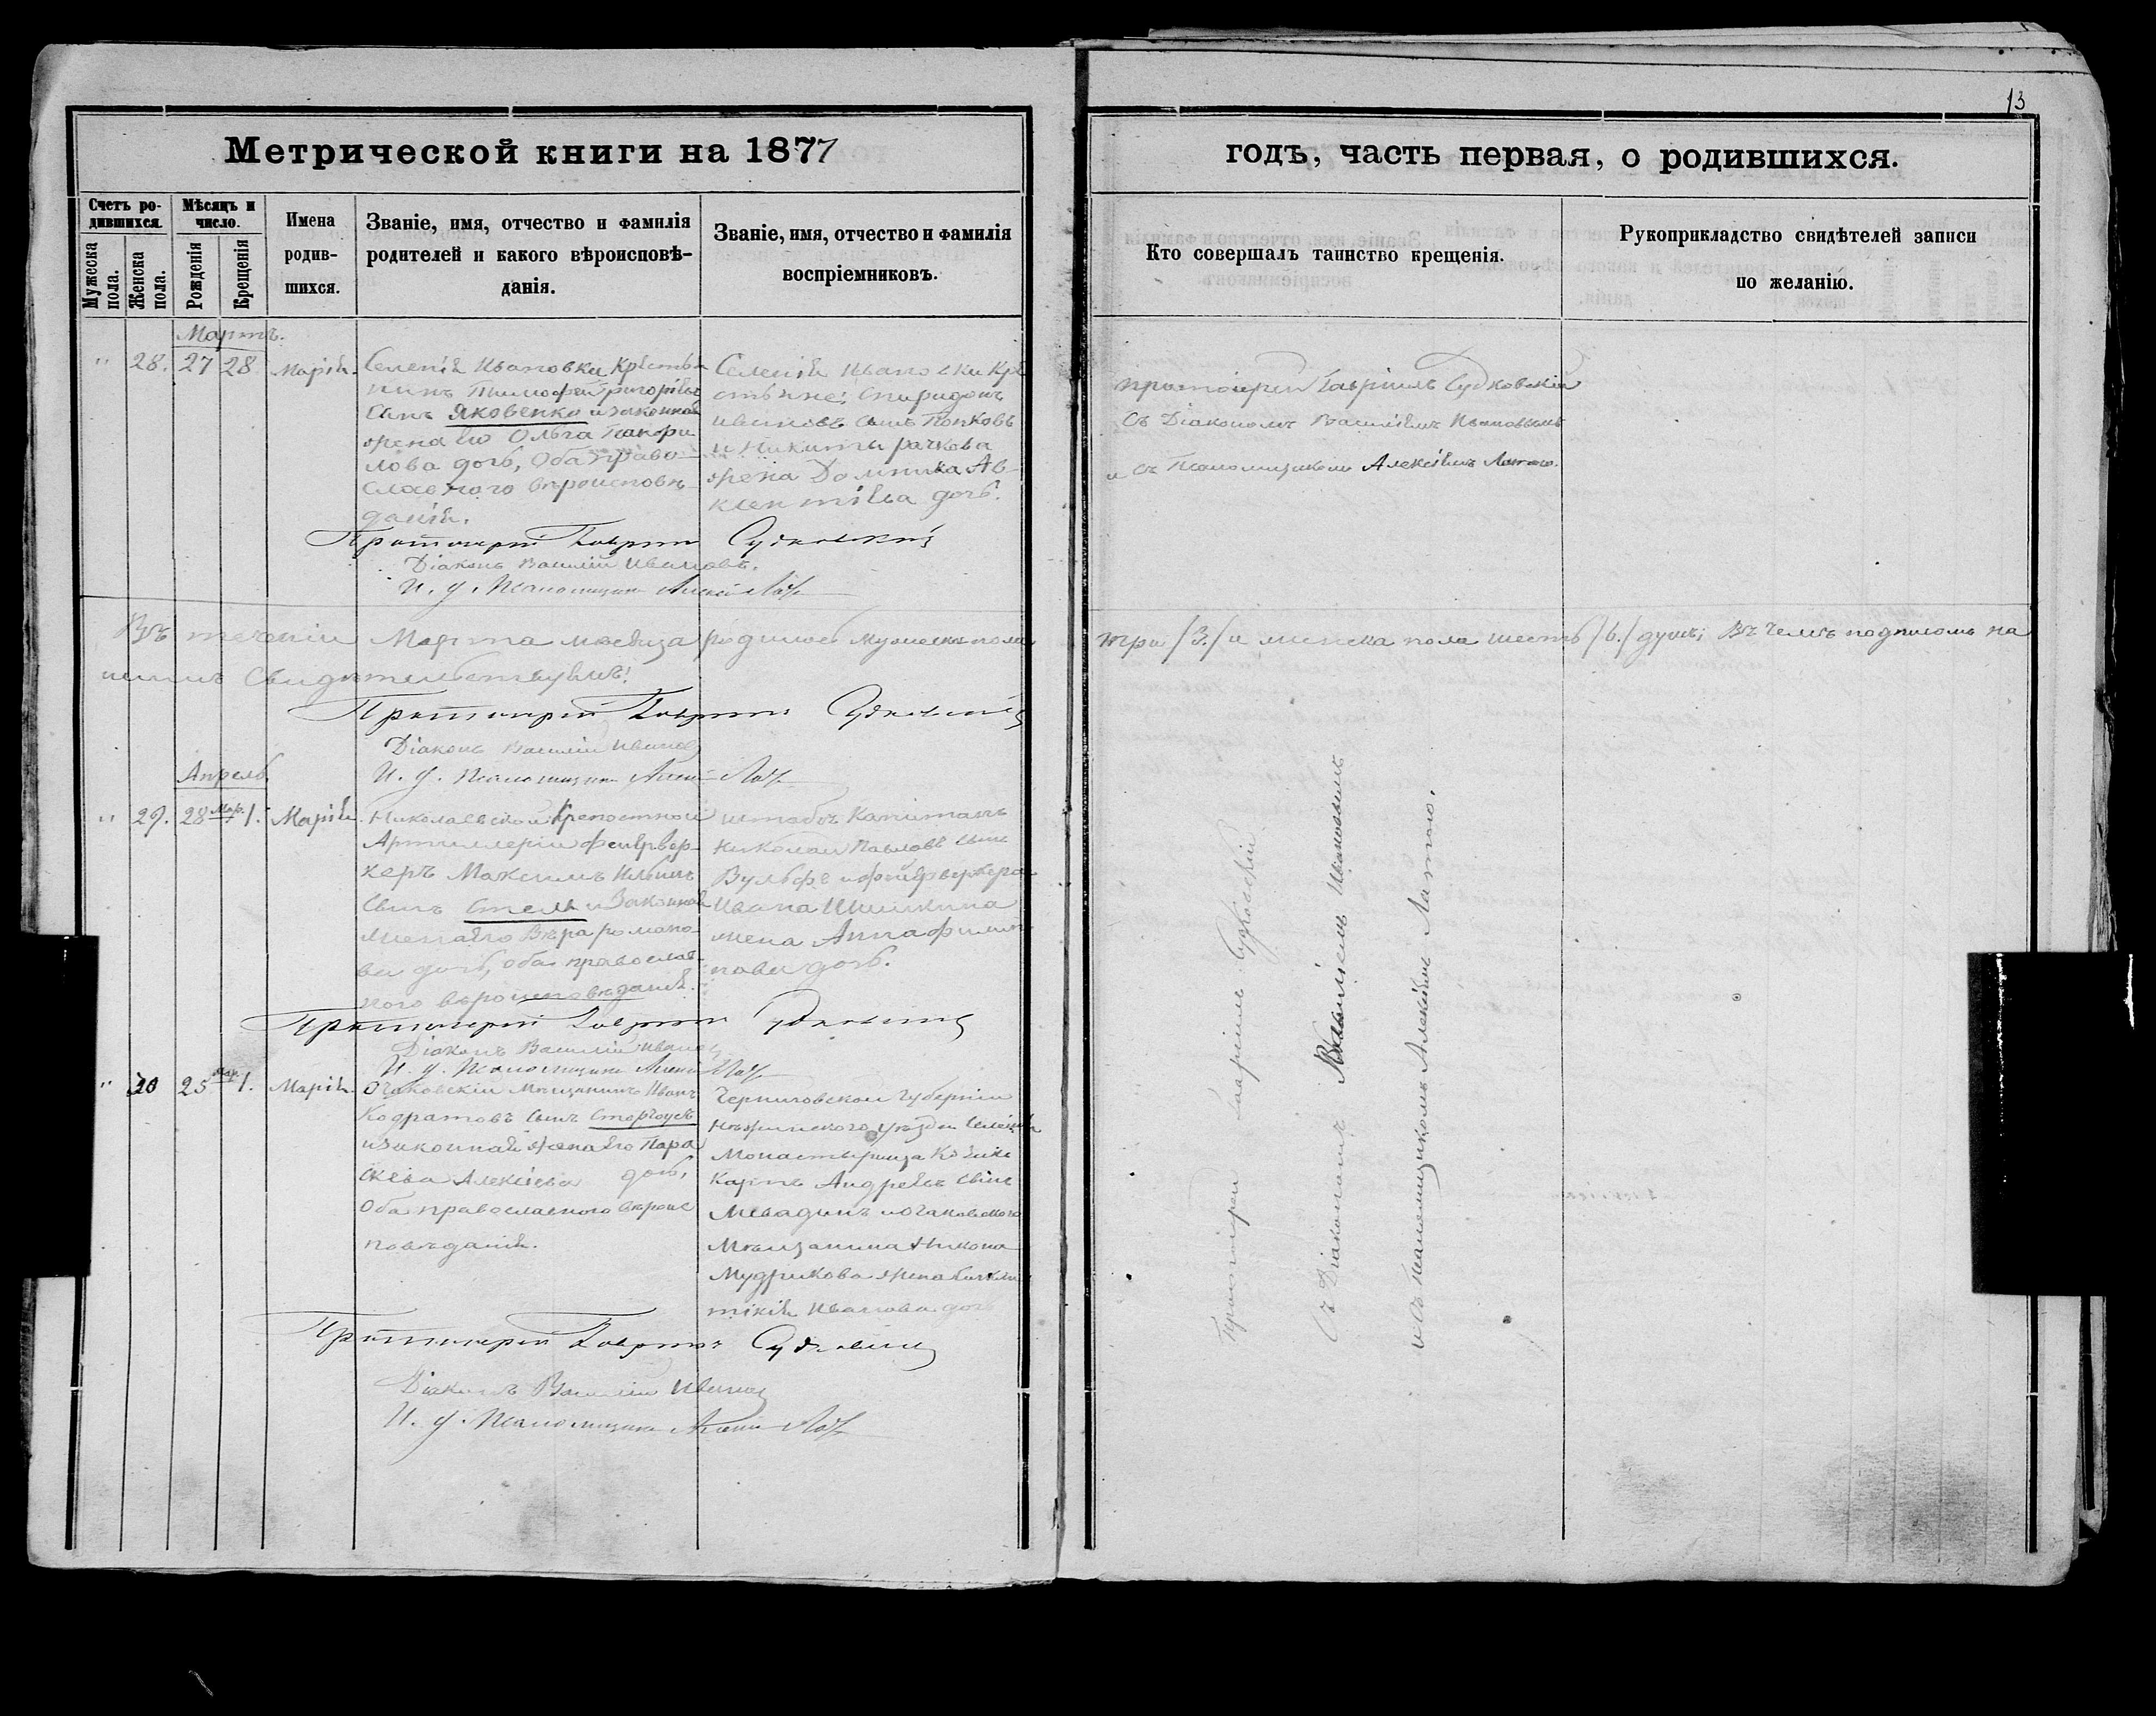 13
Метрической книги на 1877
годъ, часть первая, о родившихся.
Счетъ родившихся.
Мѣсяцъ и число.
Мужеска пола.
Женска пола.
Рожденія
Крещенія
Имена родившихся.
Званіе, имя, отчество и фамилія
родителей и какого вѣроисповѣданія.
Званіе, имя, отчество и фамилія
воспріемниковъ.
Кто совершалъ таинство крещенія.
Рукоприкладство свидѣтелей записи
по желанію.
Мартъ.
" 28. 27 28 Марія.
Селенія Ивановки Крестья
нинъ Тимофей Григорьевъ
Сынъ Яковенко и законная
жена его Ольга
дочь, Оба право
славнаго вѣроисповѣ
данія.
Селенія Ивановки Кре
стьяне: Спиридонъ
Ивановъ сынъ Попковъ
и Никиты Рачкова
жена Домника Ав
дочь.
протоіерей Гавріилъ Судковскій
Съ Діакономъ Василіемъ Ивановымъ
и съ Псаломщикомъ Алексѣемъ
Протоіерей Гавріилъ Судковскій
Діаконъ Василій Ивановъ.
И. д. Псаломщика Алексѣй
Въ теченіи Марта мѣсяца родилось мужеска пола три /3./ и женска пола шесть /6./ душъ; Въ чемъ подписомъ на
шимъ Свидѣтельствуемъ:
Протоіерей Гавріилъ Судковскій
Діаконъ Василій Ивановъ
И. д. Псаломщика Алексѣй
Апрель
" 29. 28 Мар. 1. Марія.
Николаевской Крепостной
Артиллеріи фейервер
керъ Максимъ Ильинъ
Сынъ и Законная
жена его Вѣра Романо
ва дочь, оба православ
ного вѣроисповѣданія.
Штабсъ Капитанъ
Николай Павловъ сынъ
Вульфъ и фейерверкера
Ивана Шишкина
жена Анна Филип
пова дочь.
Протоіерей Гавріилъ Судковскій
Діаконъ Василій Ивановъ
И. д. Псаломщика Алексѣй
" 30 25 Мар. 1. Марія.
Очаковскій Мѣщанинъ Иванъ
Кодратовъ Сынъ
и законная жена его Пара
скева Алексѣева дочь,
Оба православного вѣроис
повѣданія.
Черниговской Губерніи
Нѣжинского уѣзда Селенія
Монастырища
Карпъ Андреевъ сынъ
и Очаковского
Мѣщанина Никона
Мудрикова жена
Иванова дочь
протоіерей Гавріилъ Судковскій
Съ Діакономъ Василіемъ Ивановымъ
и Съ Псаломщикомъ Алексѣемъ
Протоіерей Гавріилъ Судковскій
Діаконъ Василій Ивановъ
И. д. Псаломщика Алексѣй